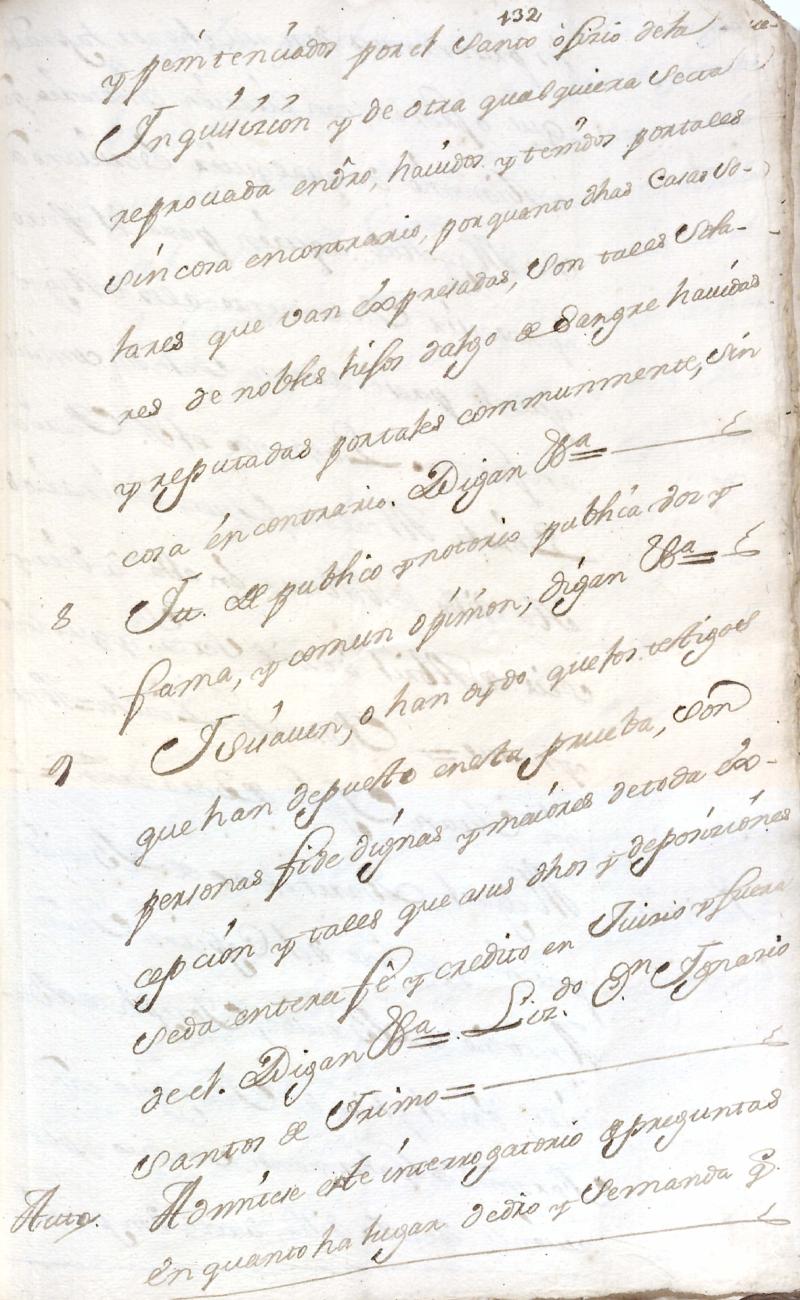 132
y penitenciados por el Santo ofizio dela
Inquisizion y de otra qualquiera Secta
reprovada endro, havidos y tenidos portales
sin cosa encontrario, porquanto dhas Casas So-
lares que van expresadas, son tales Sola-
res de nobles hijos dalgo de Sangre havidas
y reputadas portales communmente, sin
cosa en contrario. Digan &a =
8 It. de publico y notorio publica voz y
fama, y comun opinion, digan &a =
9 I si saven, o han oydo que los testigos
que han depuesto enesta prueba, son
personas fide dignas y maiores detoda ex-
cepcion y tales que asus dhos y deposiziones
seda entera fê y credito en Juizio y fuera
de el. Digan &a = Liz.do Dn Ignazio
Santos de Frimo =
Auto. Admitese este interrogatorio de preguntas
en quanto ha lugar dedro y Semanda q.